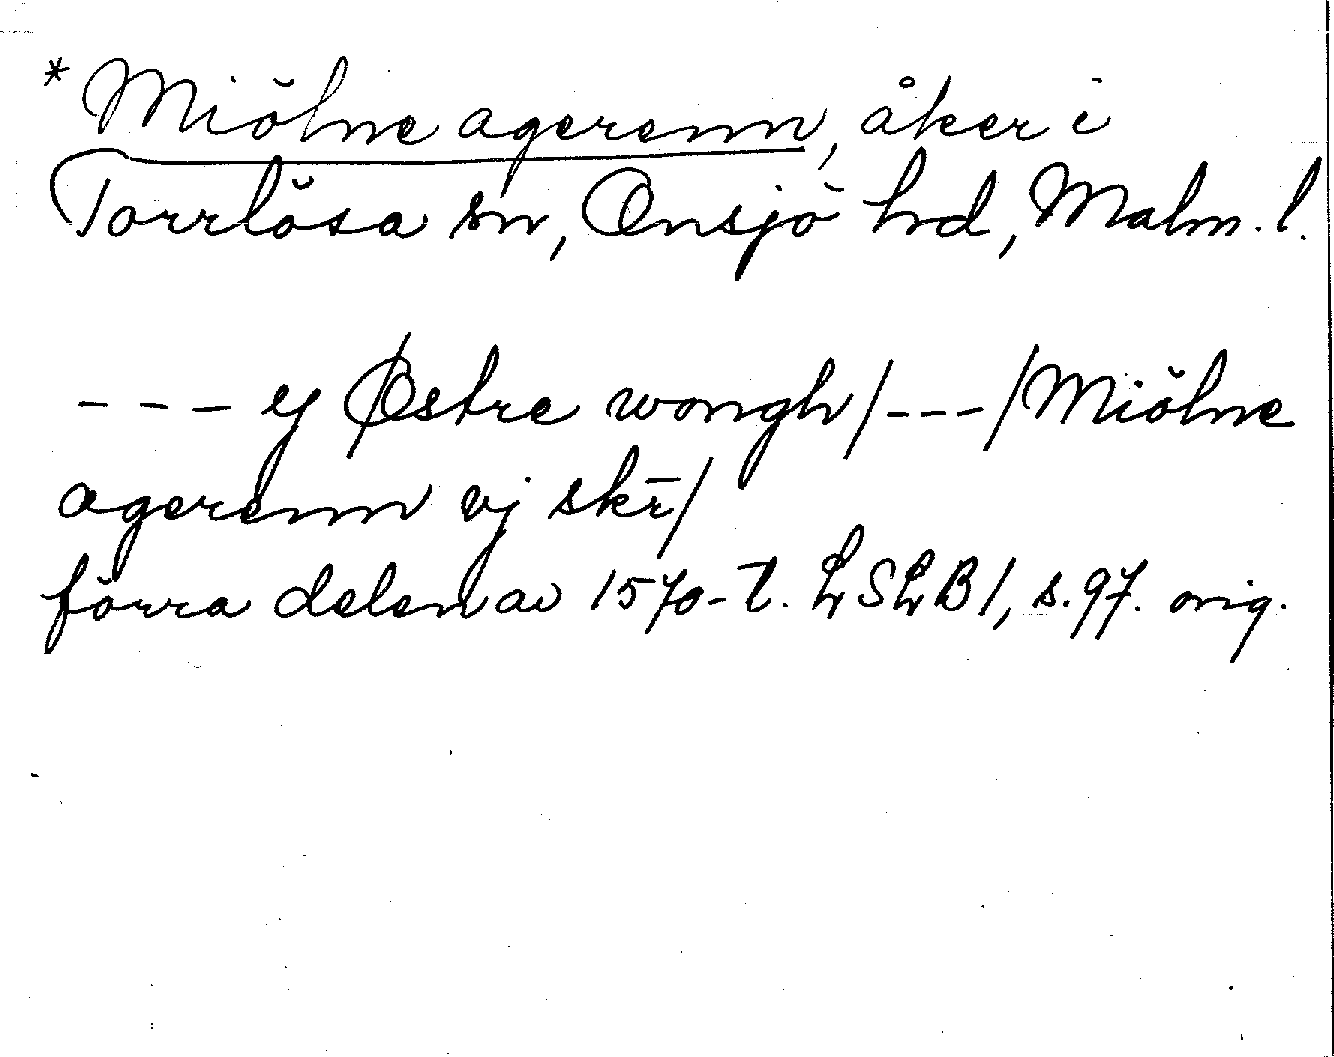 *Miölne agerenn, åker i
Torrlösa sn, Onsjö hd, Malm. l.
--- ej Østre wongh/---/Miölne
agerenn vj skr̄/
förra delen av 1570-t. LSLB1, s.97. orig.